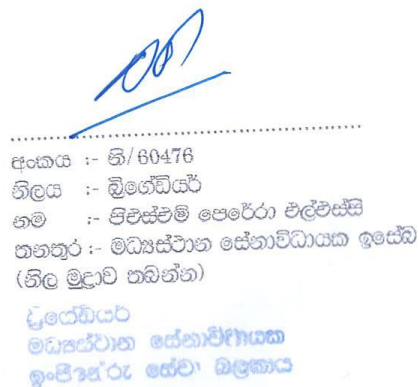 අංකය :- නි/60476
නිලය :- බ්‍රිගේඩියර්
නම :- පීඑස්එම් පෙරේරා එල්එස්සී
තනතුර :- මධ්‍යස්ථාන සේනාවිධායක ඉසේබ
(නිල මුද්‍රාව තබන්න)
බ්‍රිගේඩියර්
මධ්‍යස්ථාන සේනාවිධායක
ඉංජිනේරු සේවා බලකාය